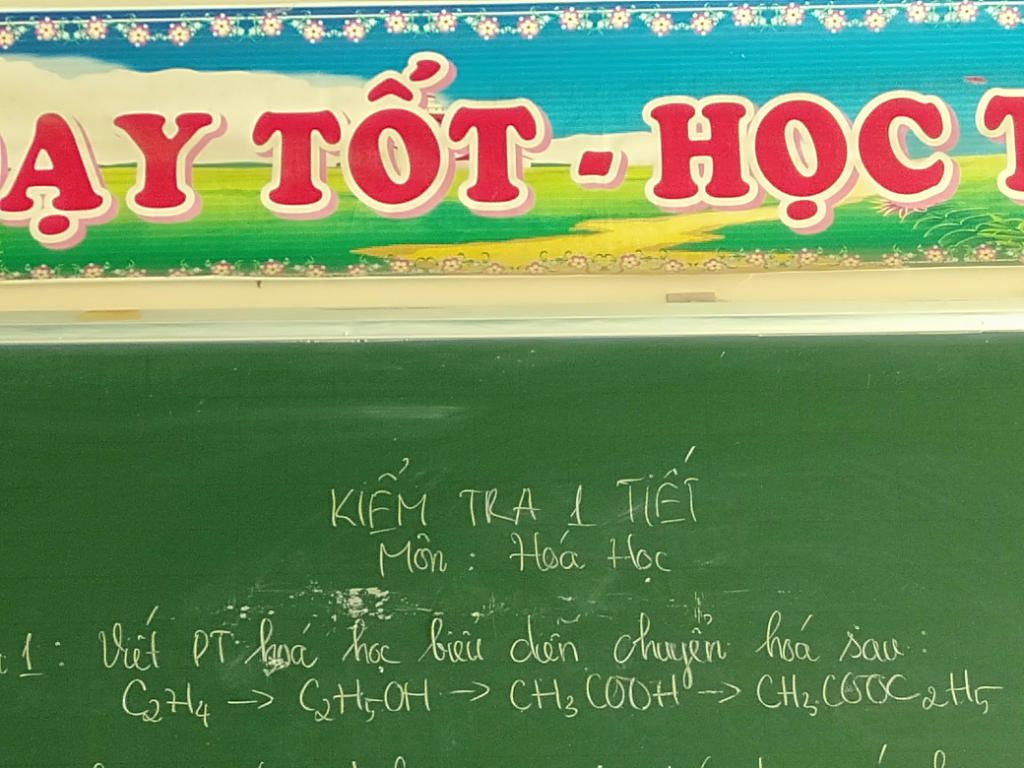 ẠY TỐT - HỌC T
KIỂM TRA 1 TIẾT
Môn : Hoá Học
1 : Viết PT hoá học biểu diễn chuyển hoá sau :
C₂H₄ → C₂H₅OH → CH₃COOH → CH₃COOC₂H₅